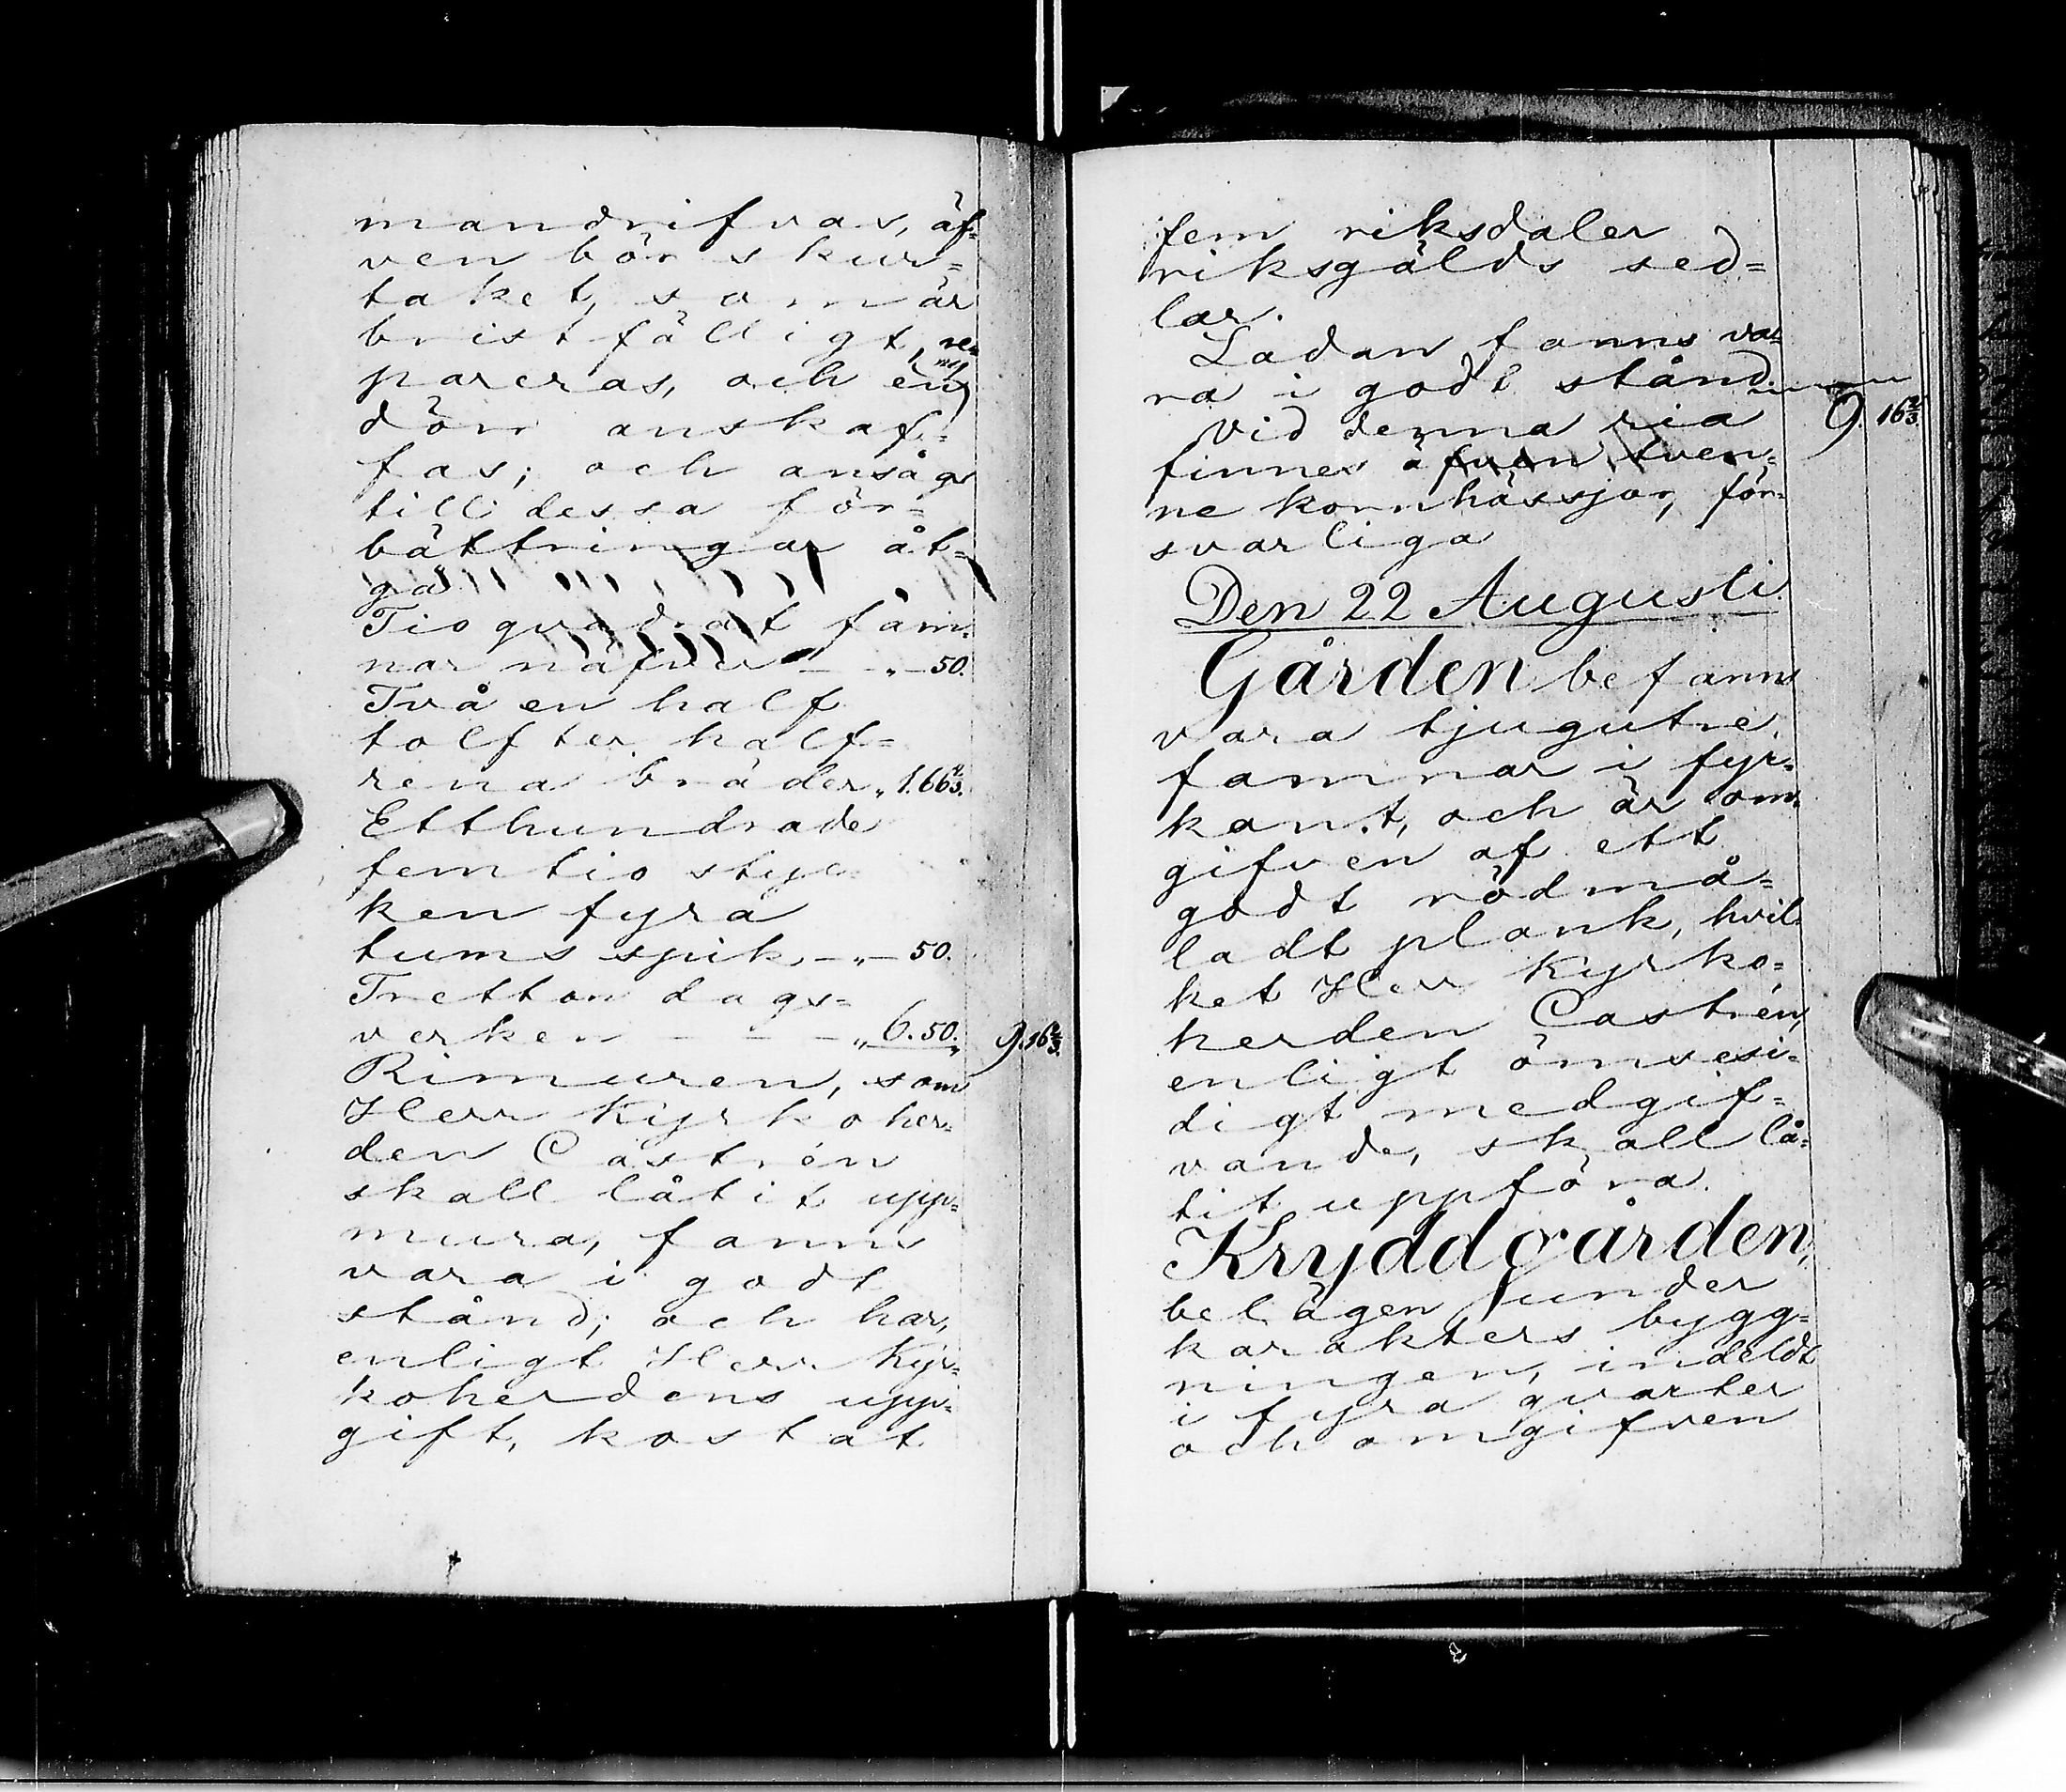 mandrifvas, äf=
ven bör skur=
taket, som är
bristfälligt, re=
pareras, och en ny
dörr anskaf=
fas; och ansågs
till dessa för=
bättringar åt=
gå
Tio qvadrat fam=
nar näfver — „ — 50.
Två en half
tolfter half=
rena bräder „ 1.66 2/3.
Etthundrade
femtio styc=
ken fyra
tums spik, — „ — 50.
Tretton dags=
verken — — — „ 6.50. „ 9.16 2/3.
Rimuren, som
Herr Kyrkoher=
den Castrén
skall låtit upp=
mura, fanns
vara i godt
stånd; och har,
enligt Herr Kyr=
koherdens upp=
gift, kostat
fem riksdaler
riksgälds sed=
lar.
Ladan fanns va=
ra i godt stånd
9.16 2/3.
Vid denna ria
finnes äfven tven=
ne kornhässjor, för=
svarliga
Den 22 Augusti.
Gården befanns
vara tjugutre
famnar i fyr=
kant, och är om=
gifven af ett
godt rödmå=
ladt plank, hvil=
ket Herr Kyrko=
herden Castrén,
enligt ömsesi=
digt medgif=
vande, skall lå=
tit uppföra.
Kryddgården,
belägen under
karakters bygg=
ningen, indeldt
i fyra qvarter
och omgifven